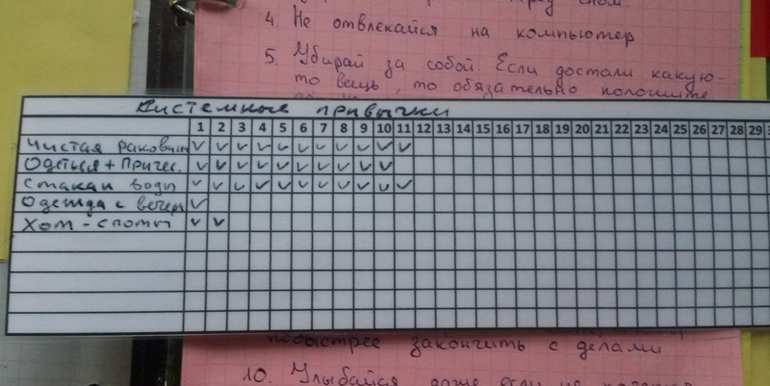 4. Не отвлекайся на компьютер
5. Убирай за собой. Если достали какую-
то вещь, то обязательно положите
Системные привычки
1 2 3 4 5 6 7 8 9 10 11 12 13 14 15 16 17 18 19 20 21 22 23 24 25 26 27 28 29
Чистая раковина
Одеться + Причес.
Стакан воды
Одежда с вечера
Хот-споты
побыстрее закончить с делами
10. Улыбайся даже если не